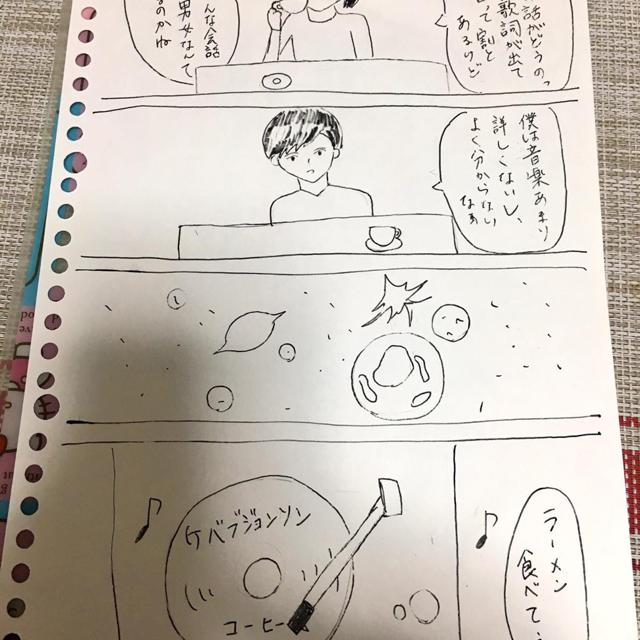 話がどうのっ
歌詞が出て
て割と
あるけど
んな会話
男女なんて
るのかね
僕は音楽あまり
詳しくないし、
よく分からない
なぁ
ケバブジョンソン
コーヒー
ラーメン
食べて